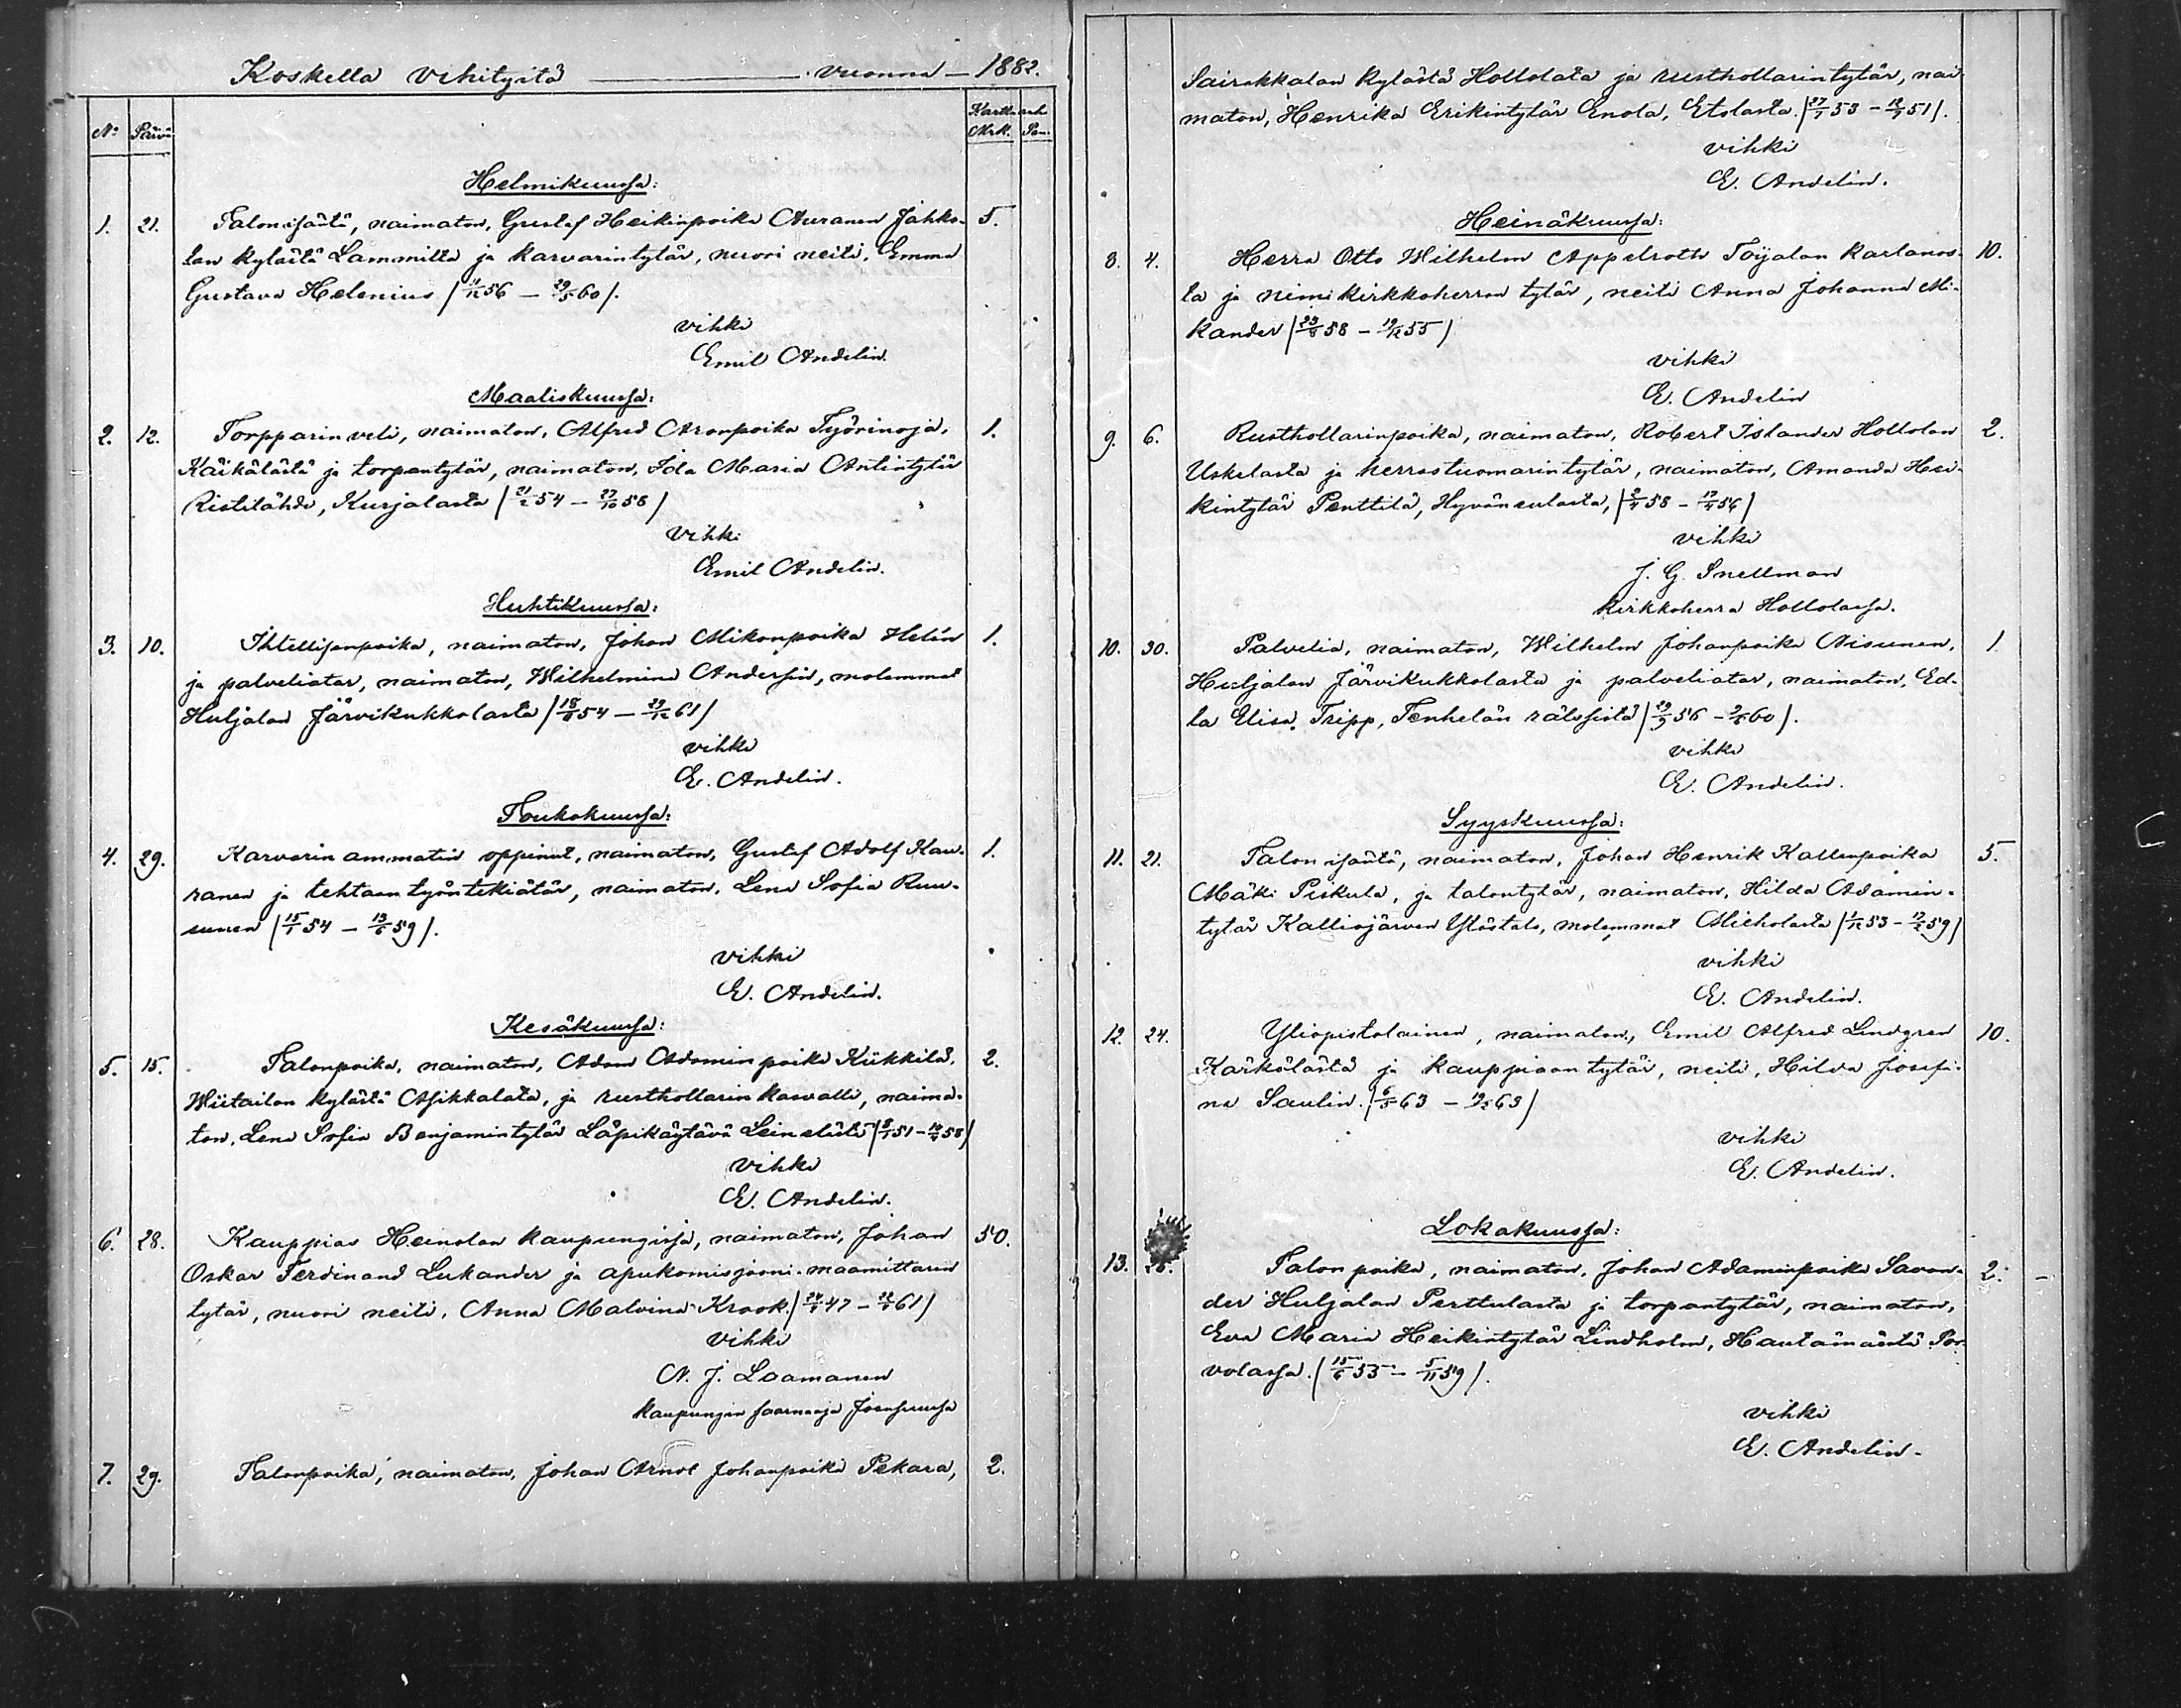 Koskella vihityitä vuonna 1882.
No Päivä Mrk.
Helmikuussa:
1. 21. Talonisäntä, naimaton, Gustaf Heikinpoika Auranen Jahko- 5.
lan kylästä Lammilta ja karvarintytär, nuori neiti, Emma
Gustava Helenius (4/12 56 – 29/5 60).
vihki
Emil Andelin.
Maaliskuussa:
2. 12. Torpparin veli, naimaton, Alfred Aronpoika Työrinoja, 1.
Käikälästä ja torpantytär, naimaton, Ida Maria Antintytär
Ristilähde, Kurjalasta (21/2 54 – 27/10 58)
vihki
Emil Andelin.
Huhtikuussa:
3. 10. Ihtellisenpoika, naimaton, Johan Mikonpoika Helin 1.
ja palveliatar, naimaton, Wilhelmina Andersin, molemmat
Huljalan Järvikukkolasta (18/8 54 – 29/12 61)
vihki
E. Andelin.
Toukokuussa:
4. 29. Karvarin ammatin oppinut, naimaton, Gustaf Adolf Kau- 1.
ranen ja tehtaan työntekiätär, naimaton, Lena Sofia Ruu-
sunen (15/1 54 – 13/6 59).
vihki
E. Andelin.
Kesäkuussa:
5. 15. Talonpoika, naimaton, Adam Adaminpoika Kükkilä, 2.
Wiitailan kylästä Asikkalata, ja rusthollarin kasvatti, naima-
ton, Lena Sofia Benjamintytär Läpikäytävä Leineliitü
vihki
E. Andelin.
6. 28. Kauppias Heinolan kaupungissa, naimaton, Johan 50.
Oskar Ferdinand Lukander ja apukomissjooni-maamittarin
tytär, nuori neiti, Anna Malvina Krook.
vihki
N. J. Laamanen
kaupungin saarnaaja Joensuussa
7. 29. Talonpoika, naimaton, Johan Arnol Johanpoika Pekara, 2.
Sairakkalan kylästä Hollolata ja rusthollarintytär, nai-
maton, Henrika Erikintytär Enola, Etolasta. (27/7 53 – 12/7 51).
vihki
E. Andelin.
Heinäkuussa:
8. 4. Herra Otto Wilhelm Appelroth Töijalan kartanos- 10.
ta ja nimikirkkoherran tytär, neiti Anna Johanna Mi-
kander (23/8 58 – 19/12 55)
vihki
E. Andelin
9. 6. Rusthollarinpoika, naimaton, Robert Islander Hollolan 2.
Uskelasta ja herrastuomarintytär, naimaton, Amanda Hei-
kintytär Penttilä, Hyväneulasta,
vihki
J. G. Snellman
kirkkoherra Hollolassa.
10. 30. Palvelia, naimaton, Wilhelm Johanpoika Nisunen, 1.
Huljalan Järvikukkolasta ja palveliatar, naimaton, Ed-
la Elisa Tripp, Tenhelän rälssistä (29/3 56 – 9/6 60).
vihki
E. Andelin.
Syyskuussa:
11. 21. Talon isäntä, naimaton, Johan Henrik Kallenpoika 5.
Mäki Piskula, ja talontytär, naimaton, Hilda Adamin-
tytär Kalliojärven Ylöstalo, molemmat (1/12 53 – 17/2 59)
vihki
E. Andelin.
12. 24. Yliopistolainen, naimaton, Emil Alfred Lindgren 10.
Kärkölästä ja kauppiaan tytär, neiti, Hilda Josefi-
na Saulin. (6/5 63 – 19/5 63)
vihki
E. Andelin.
Lokakuussa:
13. Talon poika, naimaton, Johan Adaminpoika Savon- 2. –
der Huljalan Perttulasta ja torpantytär, naimaton,
Eva Maria Heikintytär Lindholm, Hautamäestä Por-
volassa. (15/6 53 – 5/11 59).
vihki
E. Andelin.